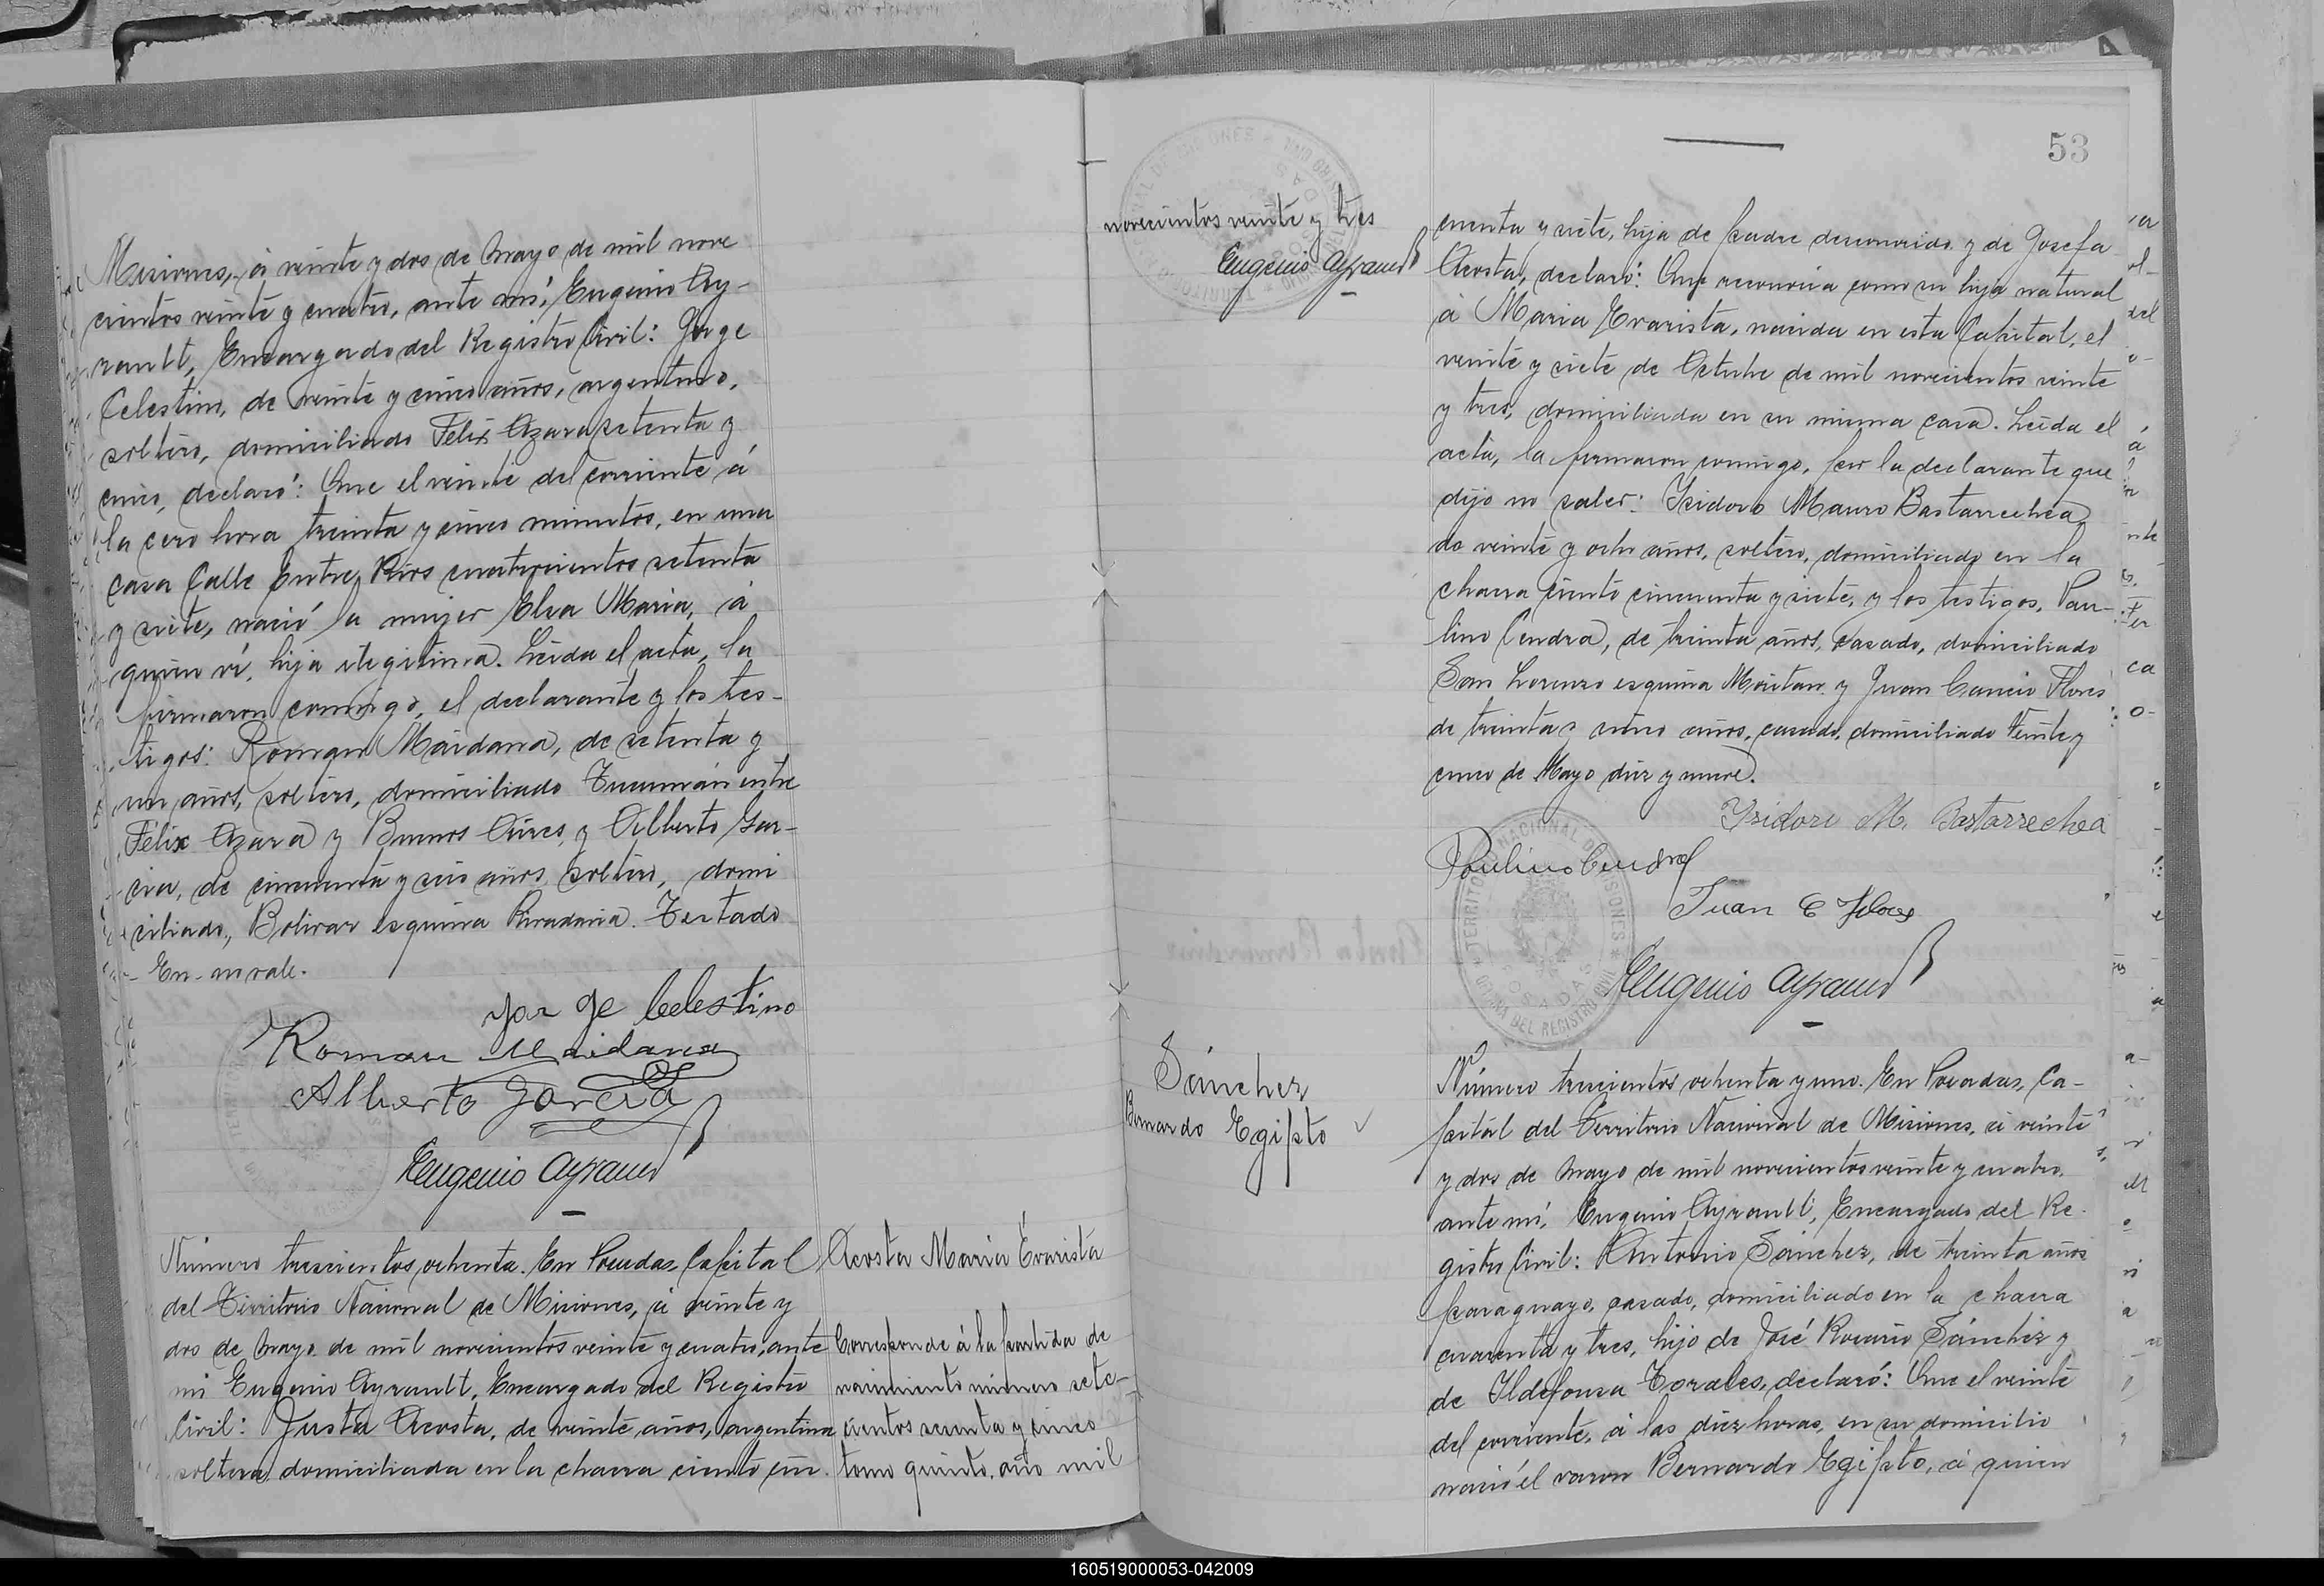 Misiones, á veinte y dos de Mayo de mil nove
cientos veinte y cuatro, ante mí, Eugenio Ay-
rault, Encargado del Registro Civil: Jorge
Celestino, de veinte y cinco años, argentino,
soltero, domiciliado Félix Azara setenta y
cinco, declaró: Que el veinte del corriente á
la cero hora treinta y cinco minutos, en una
casa Calle Entre Rios cuatrocientos setenta
y siete, nació la mujer Elsa Maria, á
quien ví, hija ilegitima. Leida el acta, la
firmaron conmigo, el declarante y los tes-
tigos: Roman Maidana, de setenta y
un años, soltero, domiciliado Tucumán entre
Félix Azara y Buenos Aires, y Alberto Gar-
cia, de cincuenta y seis años, soltero, domi
ciliado, Bolivar esquina Rivadavia. Testado
En-no vale.
Jorge Celestino
Roman Maidana
Alberto Garcia
Eugenio Ayrault
Número trescientos ochenta. En Posadas, Capital
del Territorio Nacional de Misiones, á veinte y
dos de Mayo de mil novecientos veinte y cuatro, ante
mi Eugenio Ayrault, Encargado del Registro
Civil: Justa Acosta, de veinte años, argentina
soltera, domiciliada en la chacra ciento cin
Acosta Maria Evarista
Corresponde á la partida de
nacimiento número sete-
cientos sesenta y cinco
tomo quinto, año mil
novecientos veinte y tres
Eugenio Ayrault
53
cuenta y siete, hija de padre desconocido y de Josefa
Acosta, declaró: Que reconocia como su hija natural
á Maria Evarista, nacida en esta Capital, el
veinte y siete de Octubre de mil novecientos veinte
y tres, domiciliada en su misma casa. Leida el
acta, la firmaron conmigo, por la declarante que
dijo no saber: Isidoro Mauro Bastarrechea
de veinte y ocho años, soltero, domiciliado en la
chacra ciento cincuenta y siete, y los testigos, Pau-
lino Cendra, de treinta años, casado, domiciliado
San Lorenzo esquina Moritan y Juan Cancio Flores
de treinta y cinco años, casado, domiciliado Veinte y
cinco de Mayo diez y nueve.
Isidoro M. Bastarrechea
Paulino Cendra
Juan C Flores
TERRITORIO NACIONAL DE MISIONES
OFICINA DEL REGISTRO CIVIL
POSADAS
Eugenio Ayrault
Sánchez
Bernardo Egipto
Número trescientos ochenta y uno. En Posadas, Ca-
pital del Territorio Nacional de Misiones, á veinte
y dos de Mayo de mil novecientos veinte y cuatro,
ante mí, Eugenio Ayrault, Encargado del Re-
gistro Civil: Antonio Sánchez, de treinta años
paraguayo, casado, domiciliado en la chacra
cuarenta y tres, hijo de José Rosario Sánchez y
de Ildefonsa Torales, declaró: Que el veinte
del corriente, á las diez horas, en su domicilio
nació el varon Bernardo Egipto, á quien
160519000053-042009